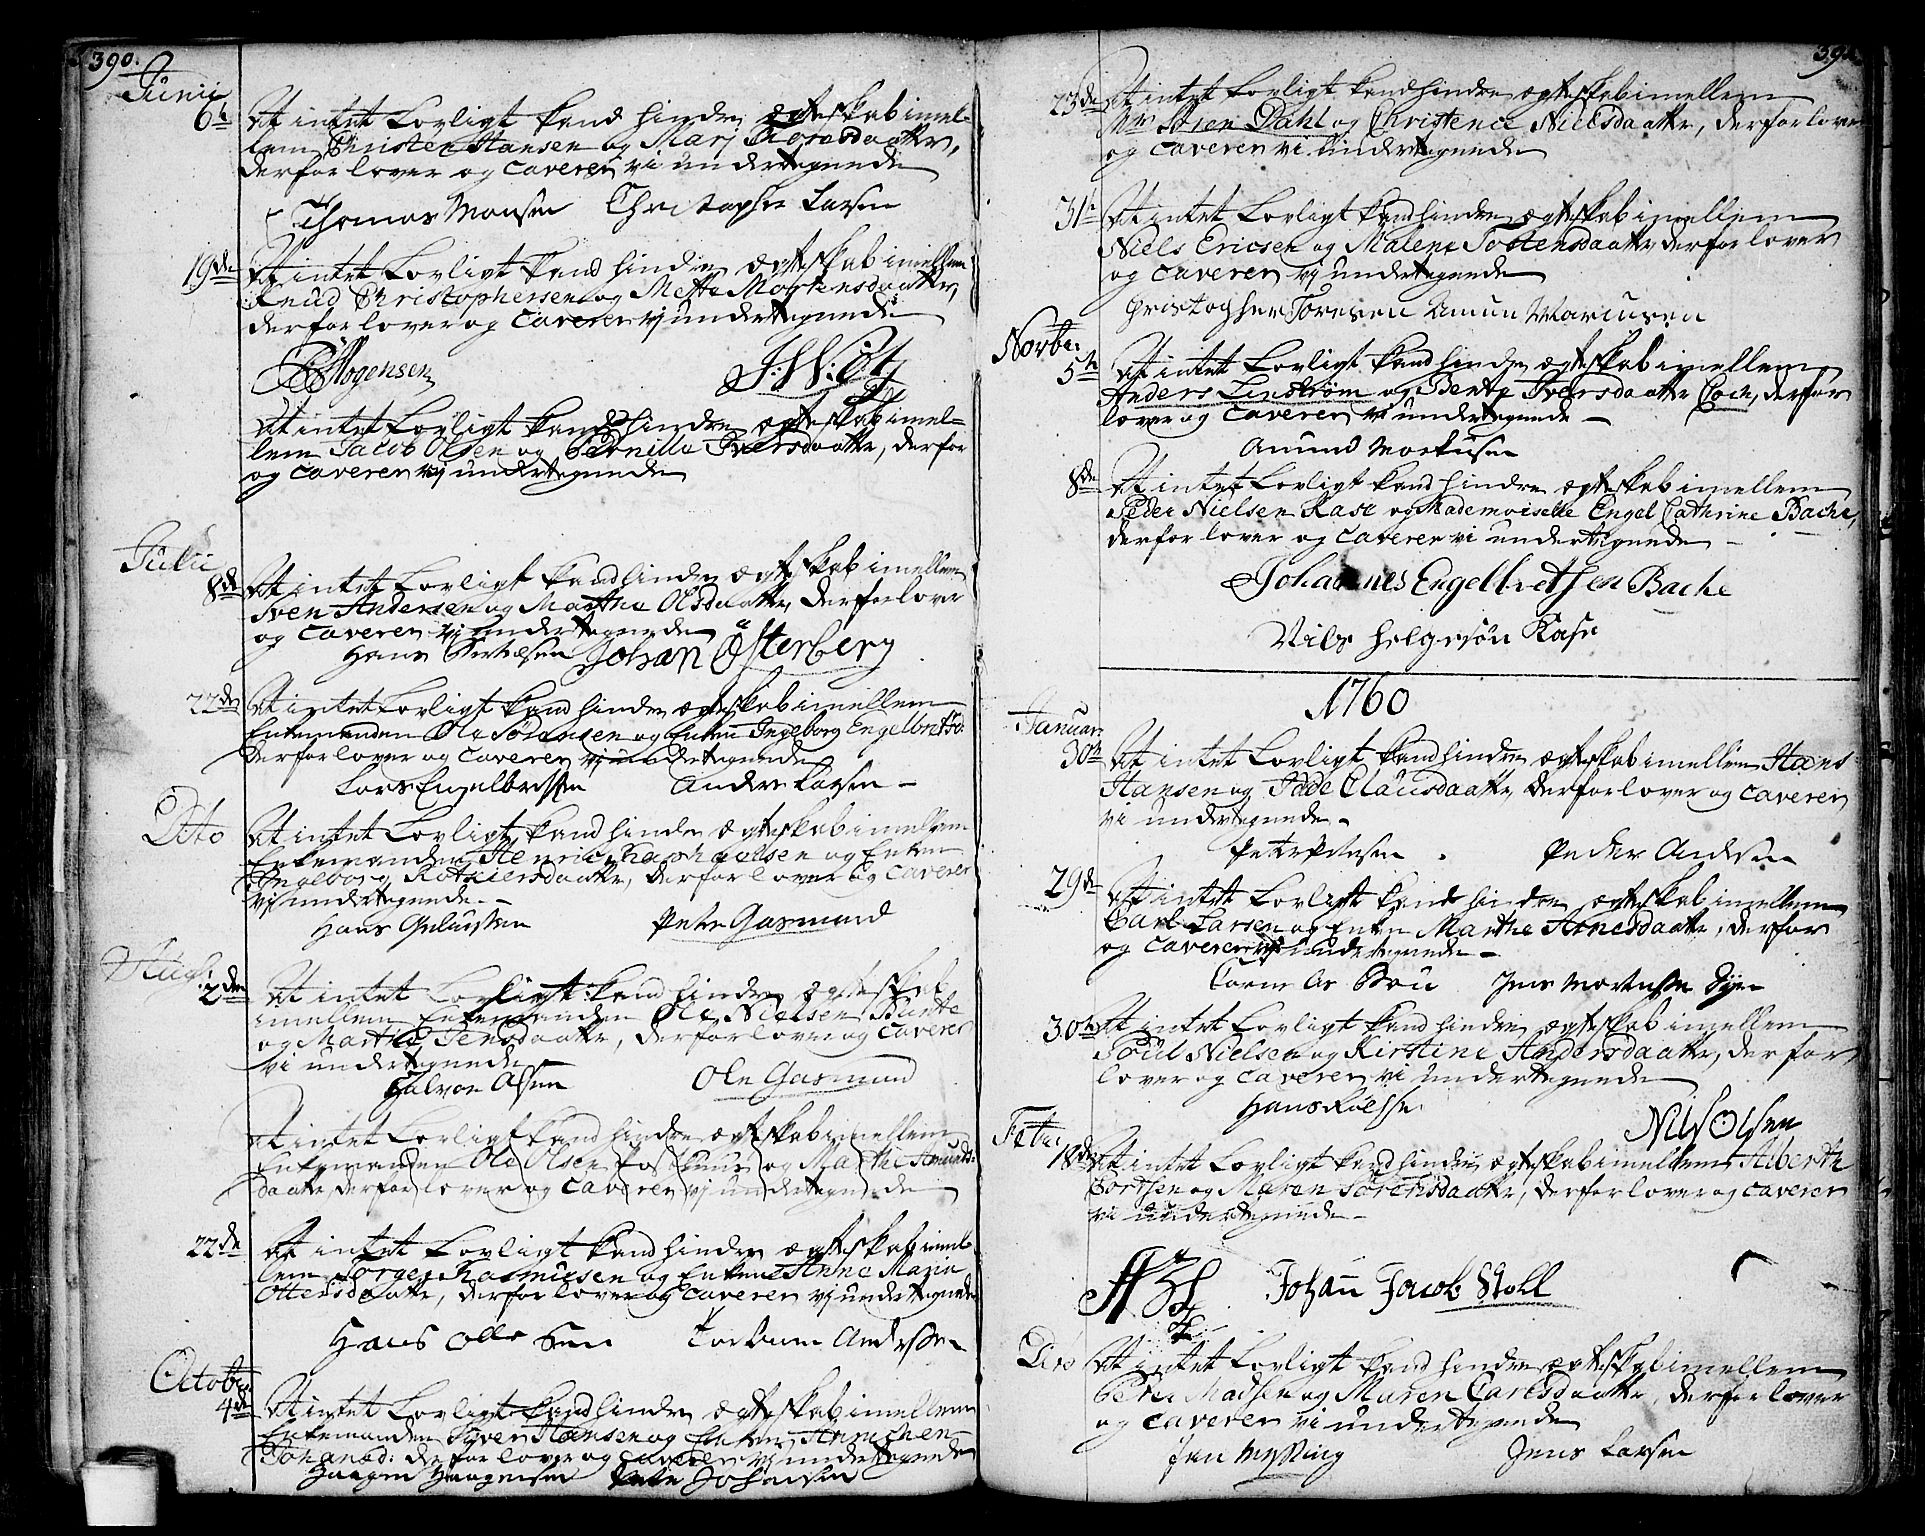 390.
Junii
6t At intet Lovligt kand hindre ægteskab imel-
lem Christen Hansen og Mari
derfor lover og caverer vi undertegnede
Thomas Monsen Christopher Larsen
19de At intet Lovligt kand hindre ægteskab imellem
Knud Christophersen og Mette Mortensdaatter,
derfor lover og caverer vj undertegnede
Mogensen
At intet Lovligt kand hindre ægteskab imel-
lem Jacob Olsen og Pernilla Iversdaatter, derfor
og caverer vj undertegnede
Julii
8de At intet Lovligt kand hindre ægteskab imellem
Sven Andersen og Marthe Olsdaatter, derfor lover
og caverer vj undertegnede
Hans Johan Österberg
22de At intet Lovligt kand hindre ægteskab imellem
Enkemanden Ole Sörensen og Enken Ingeborg Engelbretsd:
derfor lover og caverer vj undertegnede
Lars Engelbretsen Anders Larsen
Dito At intet Lovligt kand hindre ægteskab imellem
Enkemanden Henric og Enken
Ingeborg daatter, derfor lover og caverer
vj undertegnede.
Hans Peter Gasmand
2den At intet Lovligt kand hindre ægteskab
imellem Enkemanden Ole Nielsen Bunte
og Marthe Jensdaatter, derfor lover og caverer
vi undertegnede
Halvor Olsen Ole Gasmand
At intet Lovligt kand hindre ægteskab imellem
Enkemanden Ole Olsen og Marthe Amunds-
daatter, derfor lover og caverer vj undertegnede
22de At intet Lovligt kand hindre ægteskab imel-
lem Jørgen Rasmusen og Enken Anne Maria
Ottersdaatter, derfor lover og caverer vj undertegnede
Hans Olle Sen Torbiurn Andersen
Octobr
4de At intet Lovligt kand hindre ægteskab imellem
Enkemanden Syver Hansen og Enken Annichen
Johansd: derfor lover og caverer vj undertegnede
Haagen Haagensen Peter Johansen
391
23de At intet Lovligt kand hindre ægteskab imellem
Mr Søren Dahl og Christence Nielsdaatter, derfor lover
og caverer vi undertegnede
31t At intet Lovligt kand hindre ægteskab imellem
Niels Ericsen og Malene Tostensdaatter derfor lover
og caverer vj undertegnede
Christopher Toresen Amun Marcusen
Novbr:
5te At intet Lovligt kand hindre ægteskab imellem
Anders Linström og Bente Iversdaatter Coch, derfor
lover og caverer vi undertegnede
Amund Markusen
8de At intet Lovligt kand hindre ægteskab imellem
Peder Nielsen Kase og Mademoiselle Engel Cathrine Bache,
derfor lover og caverer vi undertegnede
Johannes Engelbretsen Bache
Nils Helgesøn Kase
1760
Januar:
30te At intet Lovligt kand hindre ægteskab imellem Hans
Hansen og Clausdaatter, derfor lover og caverer
vi undertegnede
Peter Petersen Peder Andersen
29de At intet Lovligt kand hindre ægteskab imellem
Carl Larsen og Enken Marthe Arnesdaatter, derfor
og caverer vj undertegnede
Jens Mortensen
30te At intet Lovligt kand hindre ægteskab imellem
Poul Nielsen og Kirstine Andersdaatter, derfor
lover og caverer vi undertegnede
Hans Nils Olsen
Febr:
18de At intet Lovligt kand hindre ægteskab imellem Alberth
og Maren Sörensdaatter, derfor lover og caverer
vi undertegnede
Johan Jacob Stoll
Dito At intet Lovligt kand hindre ægteskab imellem
Peder Madsen og Maren Carlsdaatter, derfor lover
og caverer vi undertegnede
Jens Larsen